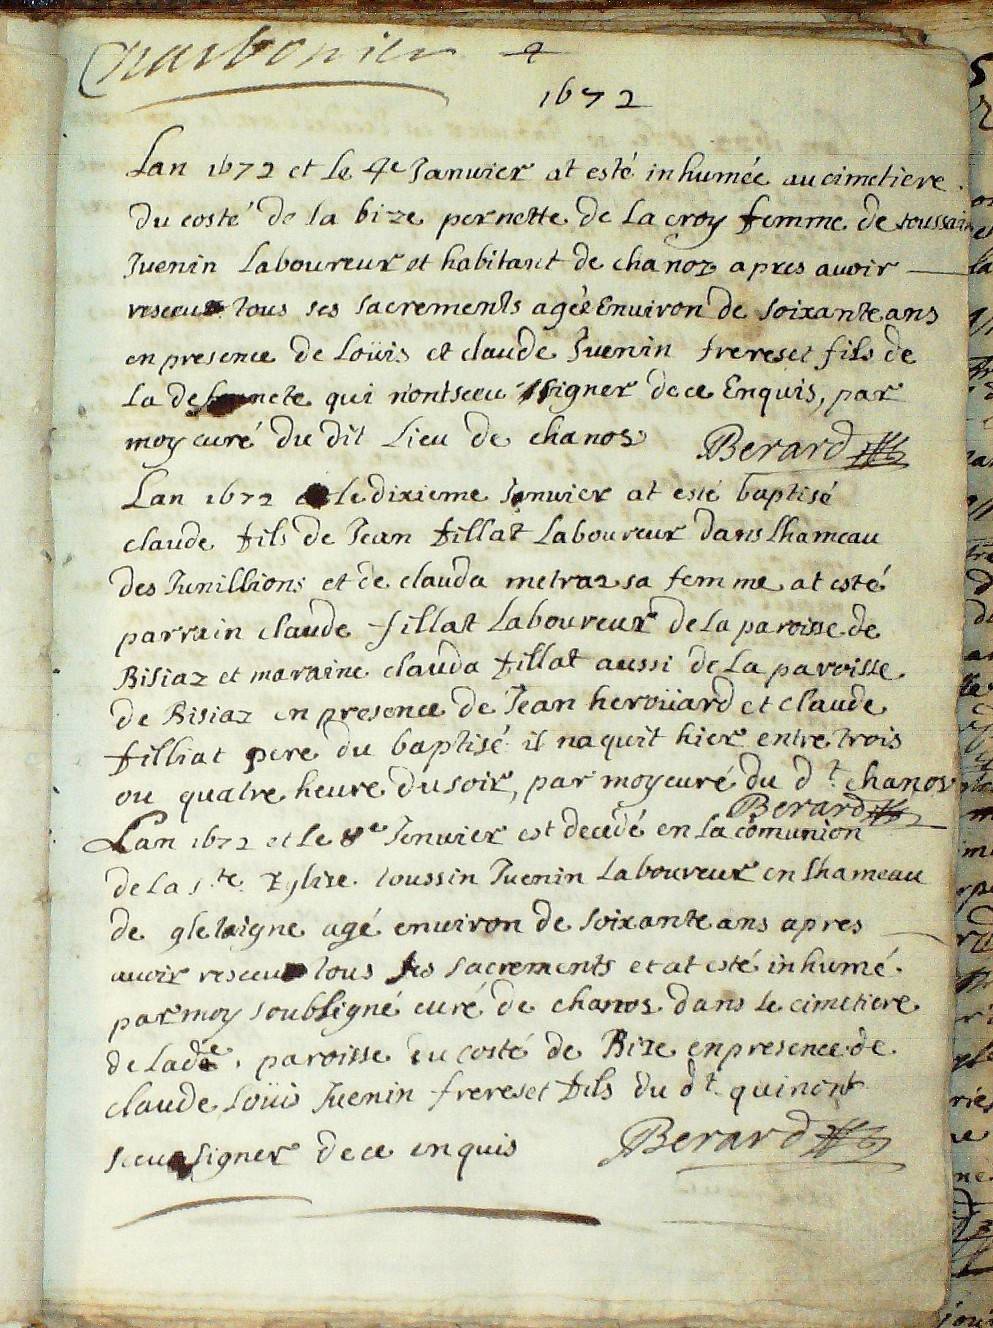 Charbonier
1672
Lan 1672 et le 4e Janvier at esté inhumée au cimetiere
du costé de la bize pernette de la croy femme de toussain
Juenin Laboureur et habitant de chanoz apres avoir
resceu tous ses sacrements agée Environ de soixante ans
en presence de Loüis et claude Juenin freres et fils de
La defuncte qui n'ont sceu signer de ce Enquis, par
moy curé du dit Lieu de chanos Berard
Lan 1672 et le dixieme Janvier at esté baptisé
claude fils de Jean fillat Laboureur dans Lhameau
des Junillions et de clauda metraz sa femme at esté
parrain claude fillat Laboureur de La paroisse de
Bisiaz et maraine clauda fillat aussi de La paroisse
de Bisiaz en presence de Jean heroüard et claude
filliat pere du baptisé il naquit hier entre trois
ou quatre heure du soir, par moy curé du dt chanos
Berard
Lan 1672 et le 8e Jenvier est decedé en la comunion
de la ste Eglise toussin Juenin Laboureur en Lhameau
de gletaigne agé environ de soixante ans apres
avoir resceu tous ses sacrements et at esté inhumé
par moy soubsigné curé de chanos dans le cimetiere
de lade paroisse du costé de Bize en presence de
claude Loüis Juenin freres et fils du dt qui nont
sceu signer de ce enquis Berard